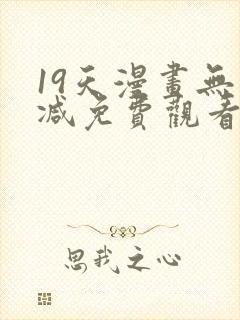 19天漫畫無
減免費觀看
思我之心